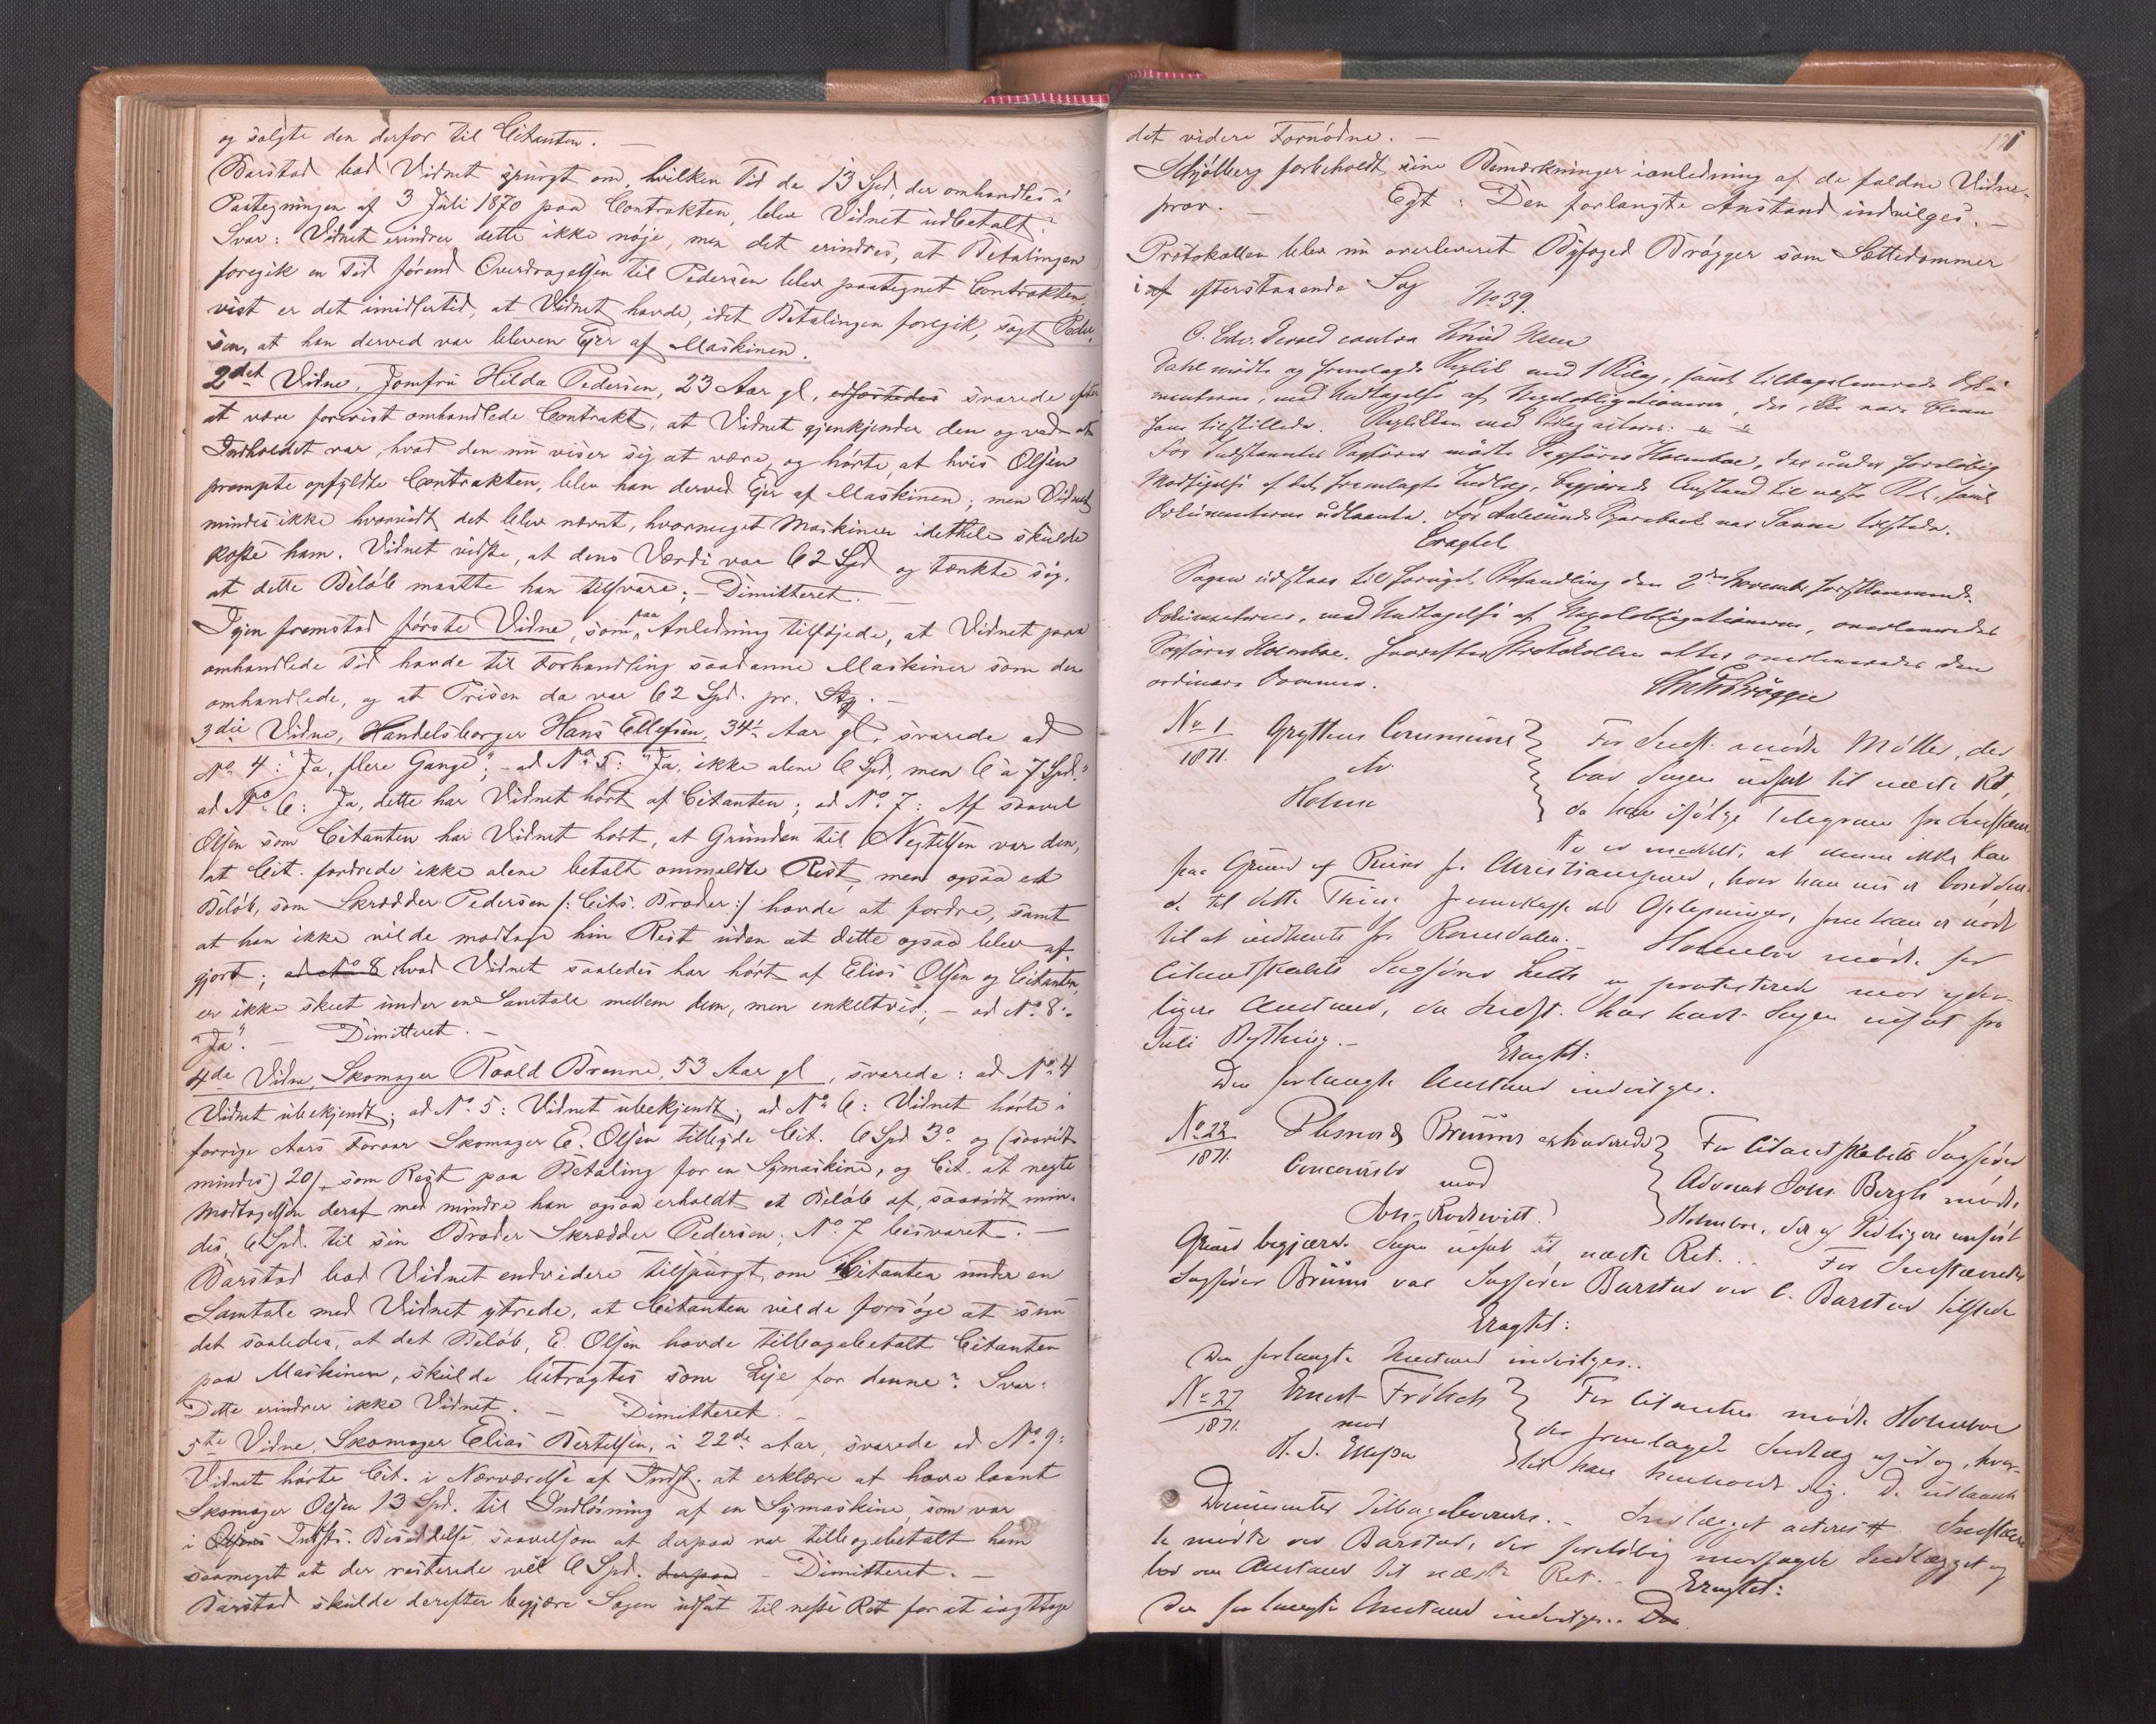 og solgte den derfor til Citanten. —
Barstad bad Vidnet spurgt om, hvilken Tid de 13 Spd, der omhandles i
Paategningen af 3 Juli 1870 paa Contrakten, blev Vidnet udbetalt?
Svar: Vidnet erindrer dette ikke nøje, men det erindres, at Betalingen
foregik en Tid førend Overdragelsen til Pedersen blev paategnet Contrakten;
vist er det imidlertid, at Vidnet havde, idet Betalingen foregik, sagt Peder-
sen, at han derved var bleven Ejer af Maskinen.
2det Vidne, Jomfru Hilda Pedersen, 23 Aar gl, svarede efter
at være forevist omhandlede Contrakt, at Vidnet gjenkjender den og ved at
Indholdet var, hvad den nu viser sig at være, og hørte, at hvis Olsen
prompte opfyldte Contrakten, blev han derved Ejer af Maskinen; men Vidnet
mindes ikke hvorvidt det blev nævnt, hvormeget Maskinen idethele skulde
koste ham. Vidnet vidste, at dens Værdi var 62 Spd og tænkte sig,
at dette Beløb maatte han tilsvare; — Dimitteret. —
Igjen fremstod første Vidne, som paa Anledning tilføjede, at Vidnet paa
omhandlede Tid havde til Forhandling saadanne Maskiner som den
omhandlede, og at Prisen da var 62 Spd. pr. Stk. —
3die Vidne, Handelsborger Hans Ellefsen, 34 Aar gl, svarede ad
No 4: "Ja, flere Gange"; — ad No 5: "Ja, ikke alene 6 Spd, men 6 à 7 Spd."
ad No 6: Ja, dette har Vidnet hørt af Citanten; ad No 7: Af saavel
Olsen som Citanten har Vidnet hørt, at Grunden til Negtelsen var den,
at Cit. fordrede ikke alene betalt ommeldte Rest, men ogsaa et
Beløb, som Skrædder Pedersen /: Cits. Broder :/ havde at fordre, samt
at han ikke vilde modtage hin Rest uden at dette ogsaa blev af-
gjort; ad No 8 hvad Vidnet saaledes har hørt af Elias Olsen og Citanten,
er ikke skeet under en Samtale mellem dem, men enkeltvis; — ad No 8:
"Ja". — Dimitteret. —
4de Vidne, Skomager Roald Brenne, 53 Aar gl, svarede: ad No 4
Vidnet ubekjendt; ad No 5: Vidnet ubekjendt; ad No 6: Vidnet hørte i
forrige Aars Foraar Skomager E. Olsen tilbyde Cit. 6 Spd 3 og (saavidt
mindes) 20/ som Rest paa Betaling for en Symaskine, og Cit. at negte
Modtagelsen deraf med mindre han ogsaa erholdt et Beløb af, saavidt min-
des, 6 Spd. til sin Broder Skrædder Pedersen; No 7 besvaret. —
Barstad bad Vidnet endvidere tilspurgt, om Citanten under en
Samtale med Vidnet ytrede, at Citanten vilde forsøge at snu
det saaledes, at det Beløb, E. Olsen havde tilbagebetalt Citanten
paa Maskinen, skulde betragtes som Leje for denne? Svar:
Dette erindrer ikke Vidnet. — Dimitteret. —
5te Vidne, Skomager Elias Bertelsen, i 22de Aar, svarede ad No 9:
Vidnet hørte Cit. i Nærværelse af Indst. at erklære at have laant
Skomager Olsen 13 Spd. til Indløsning af en Symaskine, som var
i Indsts. Besiddelse saavelsom at derpaa var tilbagebetalt ham
saameget at der resterede vel 6 Spd. derpaa — Dimitteret. —
Barstad skulde derefter begjære Sagen udsat til neste Ret for at iagttage
det videre Fornødne. —
Schjølberg forbeholdt sine Bemærkninger ianledning af de faldne Vidne-
prov. — Egt: Den forlangte Anstand indvilges. —
Protokollen blev nu overleveret Byfoged Brøgger som Sættedommer
i efterstaaende Sag
No 39.
C. Edv. contra Knud
Dahl mødte og fremlagde Replik med 1 Bilag, samt tilbageleverede Doku-
menterne, med Undtagelse af , der ikke vare blevne
ham tilstillede. Replikken med Bilag acteres:
For Indstævntes Sagfører mødte Sagfører Holmboe, der under foreløbig
Modsigelse af det fremlagte Indlæg, begjærede Anstand til næste Ret, samt
Dokumenterne udlaante. For Aalesunds Sparebank var Sanne tilstede.
Eragtet
Sagen udstaar til foranstaaende Behandling den 2den November førstkommende.
Dokumenterne, med Undtagelse af , overleveredes
Sagfører Holmboe. Hvorefter Protokollen atter overleveredes den
ordinære Dommer.
Brøgger
No 1 Gryttens Commune } For Indst. mødte Møller, der
1871. ctr. bad Sagen udsat til næste Ret,
Holm da han ifølge Telegram fra Indstævn-
te er meddelt, at denne ikke kan
paa Grund af Reise fra Christianssund, hvor han nu er
de til dette Thing fremskaffe de Oplysninger, som han er nødt
til at indhente fra Romsdalen. — Holmboe mødte for
Citantskabets Sagfører og protesterede mod yder-
ligere Anstand, da Indst. har havt Sagen udsat fra
Juli Bything. —
Eragtet:
Den forlangte Anstand indvilges.
No 22 Plesner & Bruuns } For Citantskabets Sagfører
1871. Concursbo mod Advocat Johs. Bergh mødte
Joh. Holmboe, der af tidligere anført
Grund begjærede Sagen udsat til næste Ret. .. For Indstævnte
Sagfører Bruun var Sagfører Barstad ved C. Barstad tilstede
Eragtet:
Den forlangte Anstand indvilges..
No 27 Ernst Frølich } For Citanten mødte Holmboe
1871. mod der fremlagde Indlæg af i dag, hvor-
H. J. Ellefsen til han henholdt sig. De udlaante
Documenter tilbageleveredes. — Indlægget acteres # Indstævn-
te mødte ved Barstad, der foreløbig modsagde Indlægget og
bad om Anstand til næste Ret. — Eragtet:
Den forlangte Anstand indvilges..